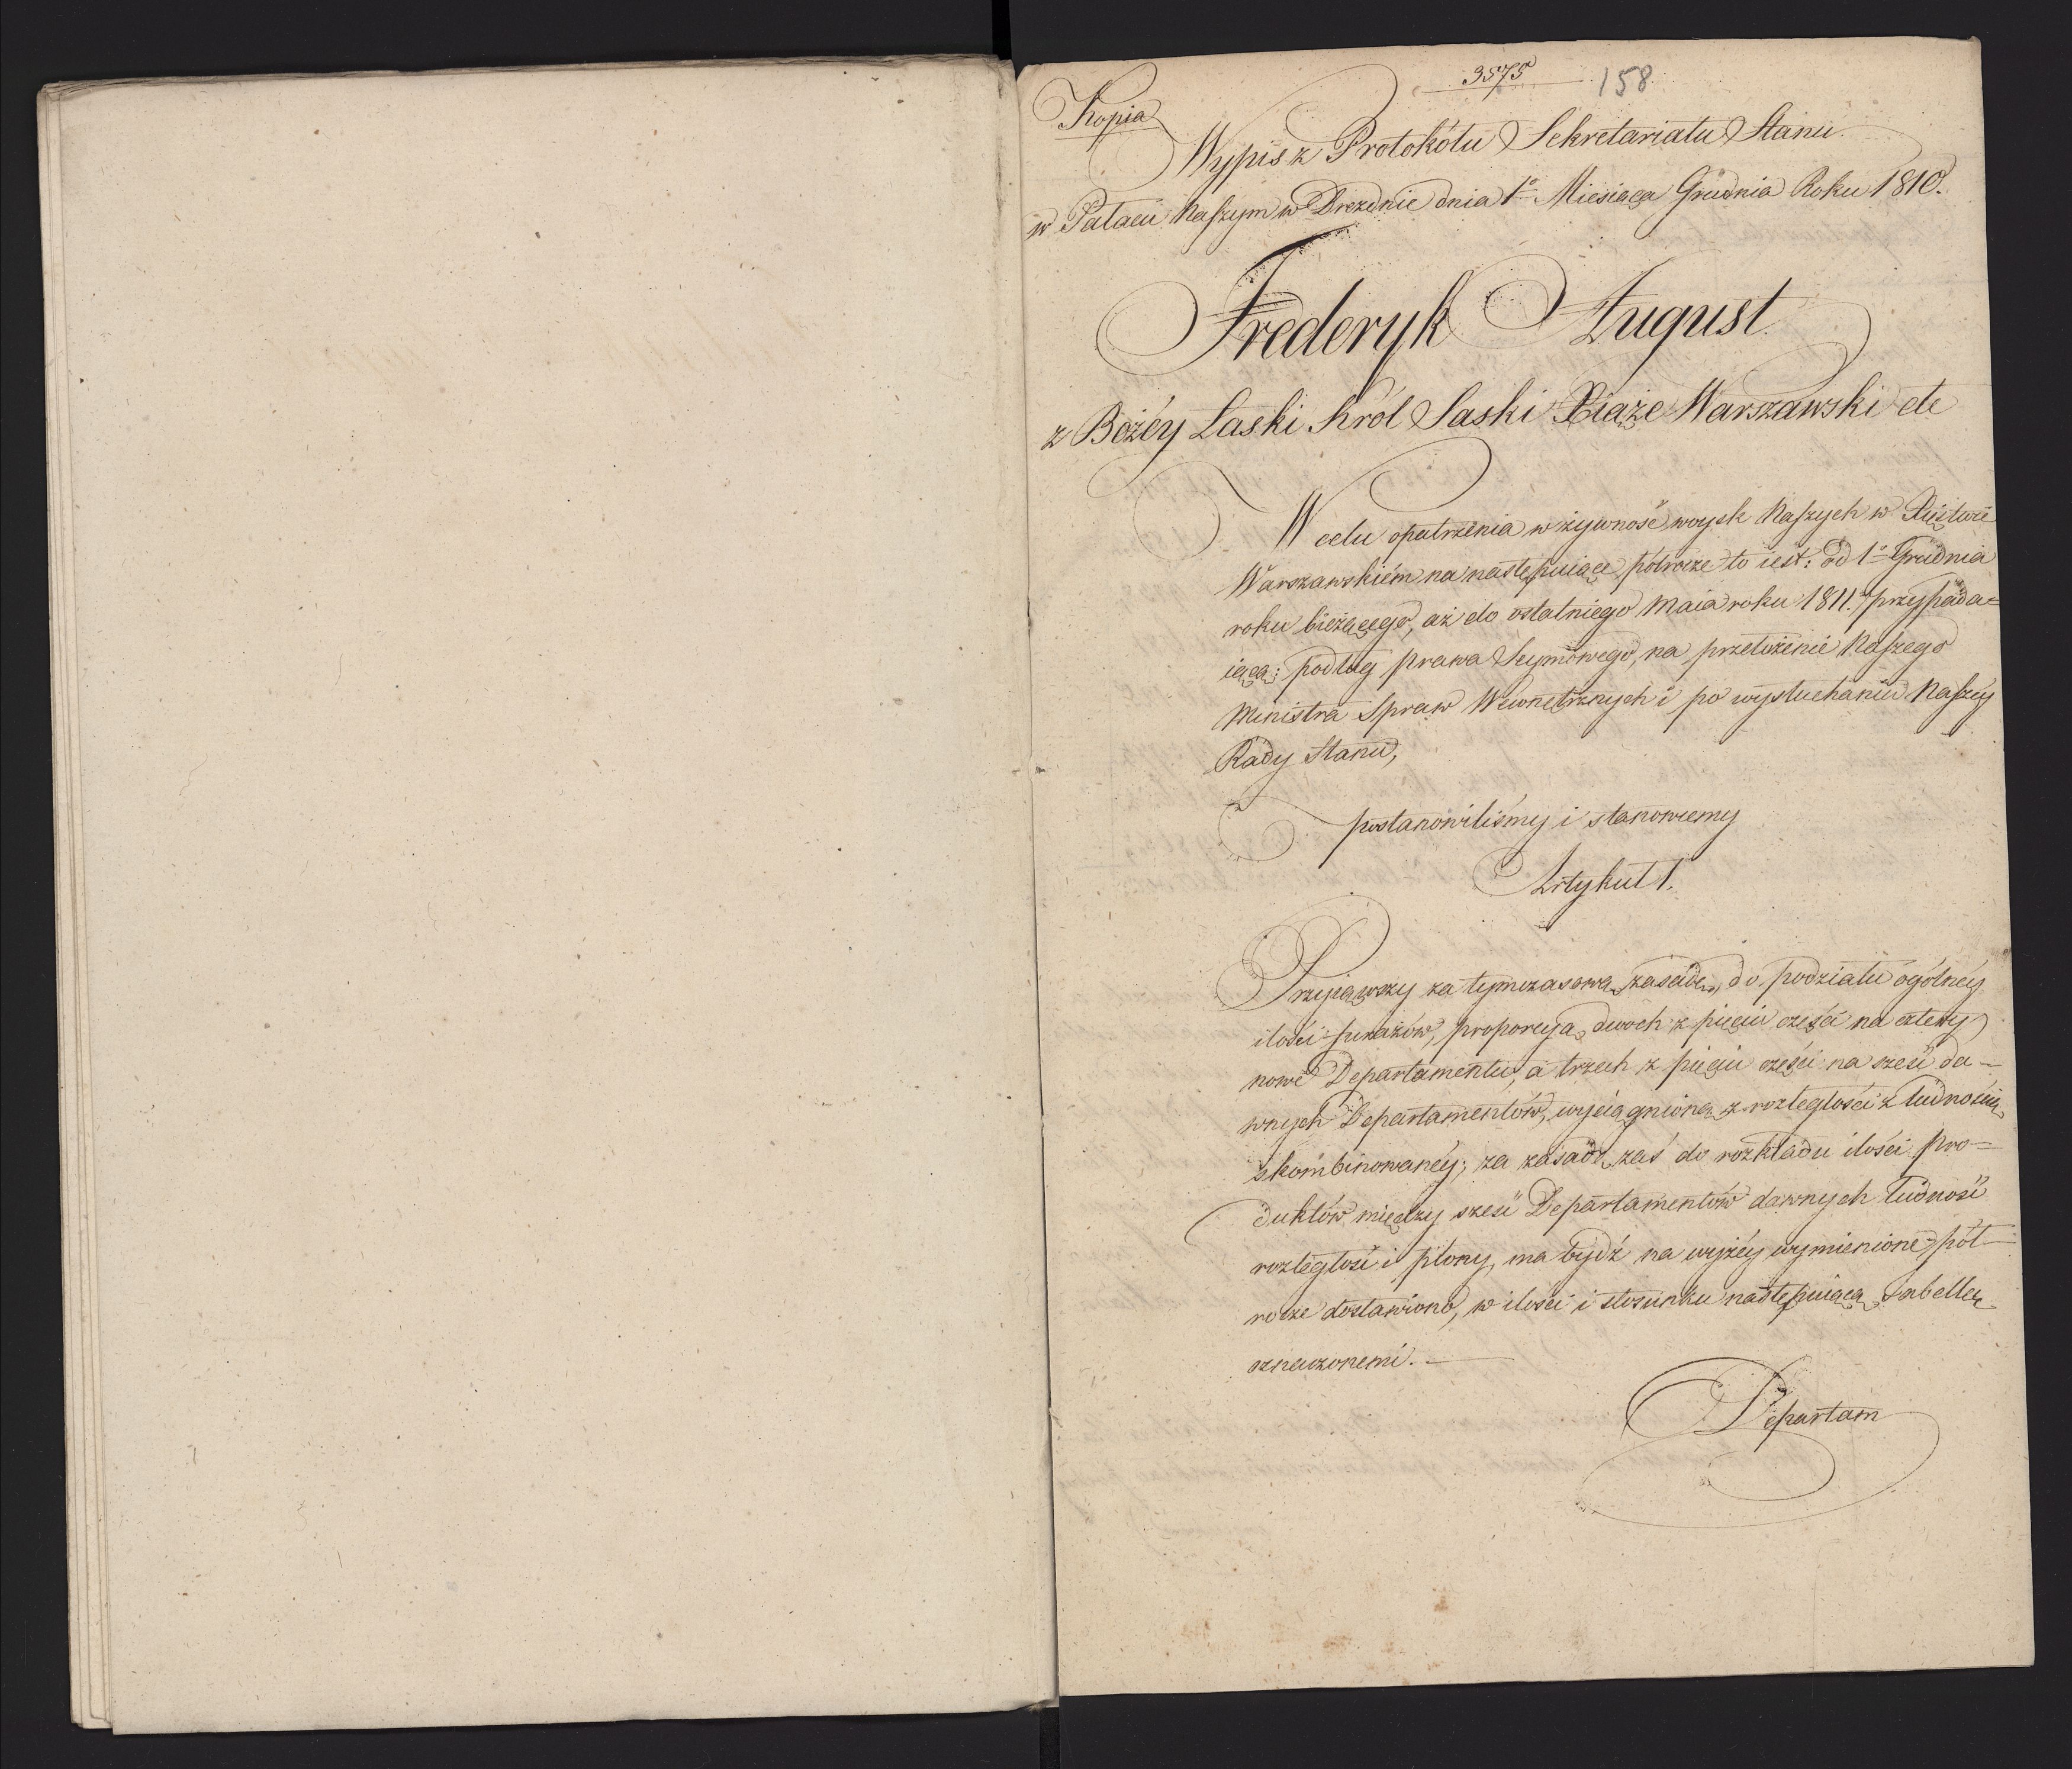 3575 158
Kopia
Wypis z Protokółu Sekretariatu Stanu
w Pałacu Naszym w Dreznie dnia 1º Miesiąca Grudnia Roku 1810.
Frederyk August
z Bożéy Łaski Król Saski Xiąże Warszawski etc
W celu opatrzenia w żywność woysk Naszych w Xięstwie
Warszawskiém na następuiące półrocze to iest: od 1º Grudnia
roku bieżącego, aż do ostatniego Maia roku 1811. przypada=
iącą; podług prawa Seymowego, na przełożenie Naszego
Ministra Spraw Wewnętrznych i po wysłuchaniu Naszéy
Rady Stanu,
postanowiliśmy i stanowiemy
Artykuł 1.
Przyiąwszy za tymczasową zasadę, do podziału ogólnéy
ilości furażów, proporcyą dwoch z pięciu części na cztery
nowe Departamenta, a trzech z pięciu części na sześć da-
wnych Departamentów, wyciągnioną z rozległości z ludnością
skombinowanéy; za zasadę zaś do rozkładu ilości pro=
duktów między sześć Departamentów dawnych ludność
rozległość i płony, ma bydź na wyżéy wymienione pół-
rocze dostawiono, w ilości i stosunku następuiącą Tabellą
oznaczonemi.
Departam